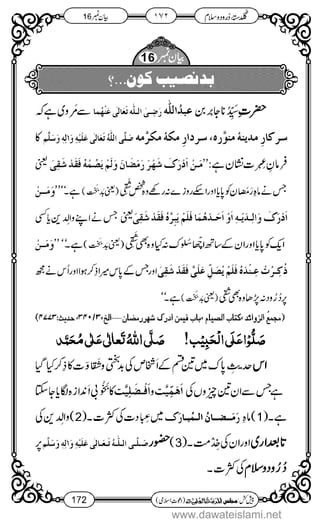 گلدستۂ دُرود و سلام ۱۷۲ بیان نمبر 16
بیان نمبر 16
بدنصیب کون...؟
حضرتِ سَیِّدُنا جابر بن عبدُاللّٰہ رَضِیَ اللہُ تَعَالٰی عَنْہُمَا سے مروی ہے کہ
سرکارِ مدینۂ منوَّرہ، سردارِ مکۂ مکرَّمہ صَلَّی اللہُ تَعَالٰی عَلَیْہِ وَاٰلِہٖ وَسَلَّم کا
فرمانِ عبرت نشان ہے: ’’مَنْ اَدْرَکَ شَہْرَ رَمَضَانَ وَلَمْ یَصُمْہُ فَقَدْ شَقِیَ یعنی
جس نے ماہِ رَمَضان کو پایا اور اسکے روزے نہ رکھے وہ شخص شقی (یعنی بدبخت) ہے۔‘‘ ’’وَمَنْ
اَدْرَکَ وَالِدَیْہِ اَوْ اَحَدَہُمَا فَلَمْ یَبِرَّہٗ فَقَدْ شَقِیَ یعنی جس نے اپنے والدین یا کسی
ایک کو پایا اور ان کے ساتھ اچھا سُلوک نہ کیا وہ بھی شقی (یعنی بدبخت) ہے۔‘‘ ’’وَمَنْ
ذُکِرْتُ عِنْدَہٗ فَلَمْ یُصَلِّ عَلَیَّ فَقَدْ شَقِیَ اور جس کے پاس میرا ذکر ہوا اور اُس نے مجھ
پر دُرُود نہ پڑھا وہ بھی شقی (یعنی بدبخت) ہے۔‘‘
(مجمعُ الزوائد، کتاب الصیام، باب فیمن ادرک شھر رمضان—الخ، ۳/۳۴۰، حدیث: ۴۷۷۳)
صَلُّوْا عَلَی الْحَبِیْب! صَلَّی اللہُ تَعَالٰی عَلٰی مُحَمَّد
اس حدیثِ پاک میں تین قسم کے اَشخاص کی بدبختی و شقاوَت کا ذکر کیا گیا
ہے جس سے ان تین چیزوں کی اَہَمِّیَّت وَاَفْضَلِیَّت کا بَخُوبی اندازہ لگایا جاسکتا
ہے۔ (1) ماہِ رَمَضانُ المبارَک میں عبادت کی کثرت۔ (2) والدین کی
تابعداری اور ان کی خدمت۔ (3) حضور صَلَّی اللہُ تَعَالٰی عَلَیْہِ وَاٰلِہٖ وَسَلَّم پر
دُرُود و سلام کی کثرت۔
172
www.dawateislami.net